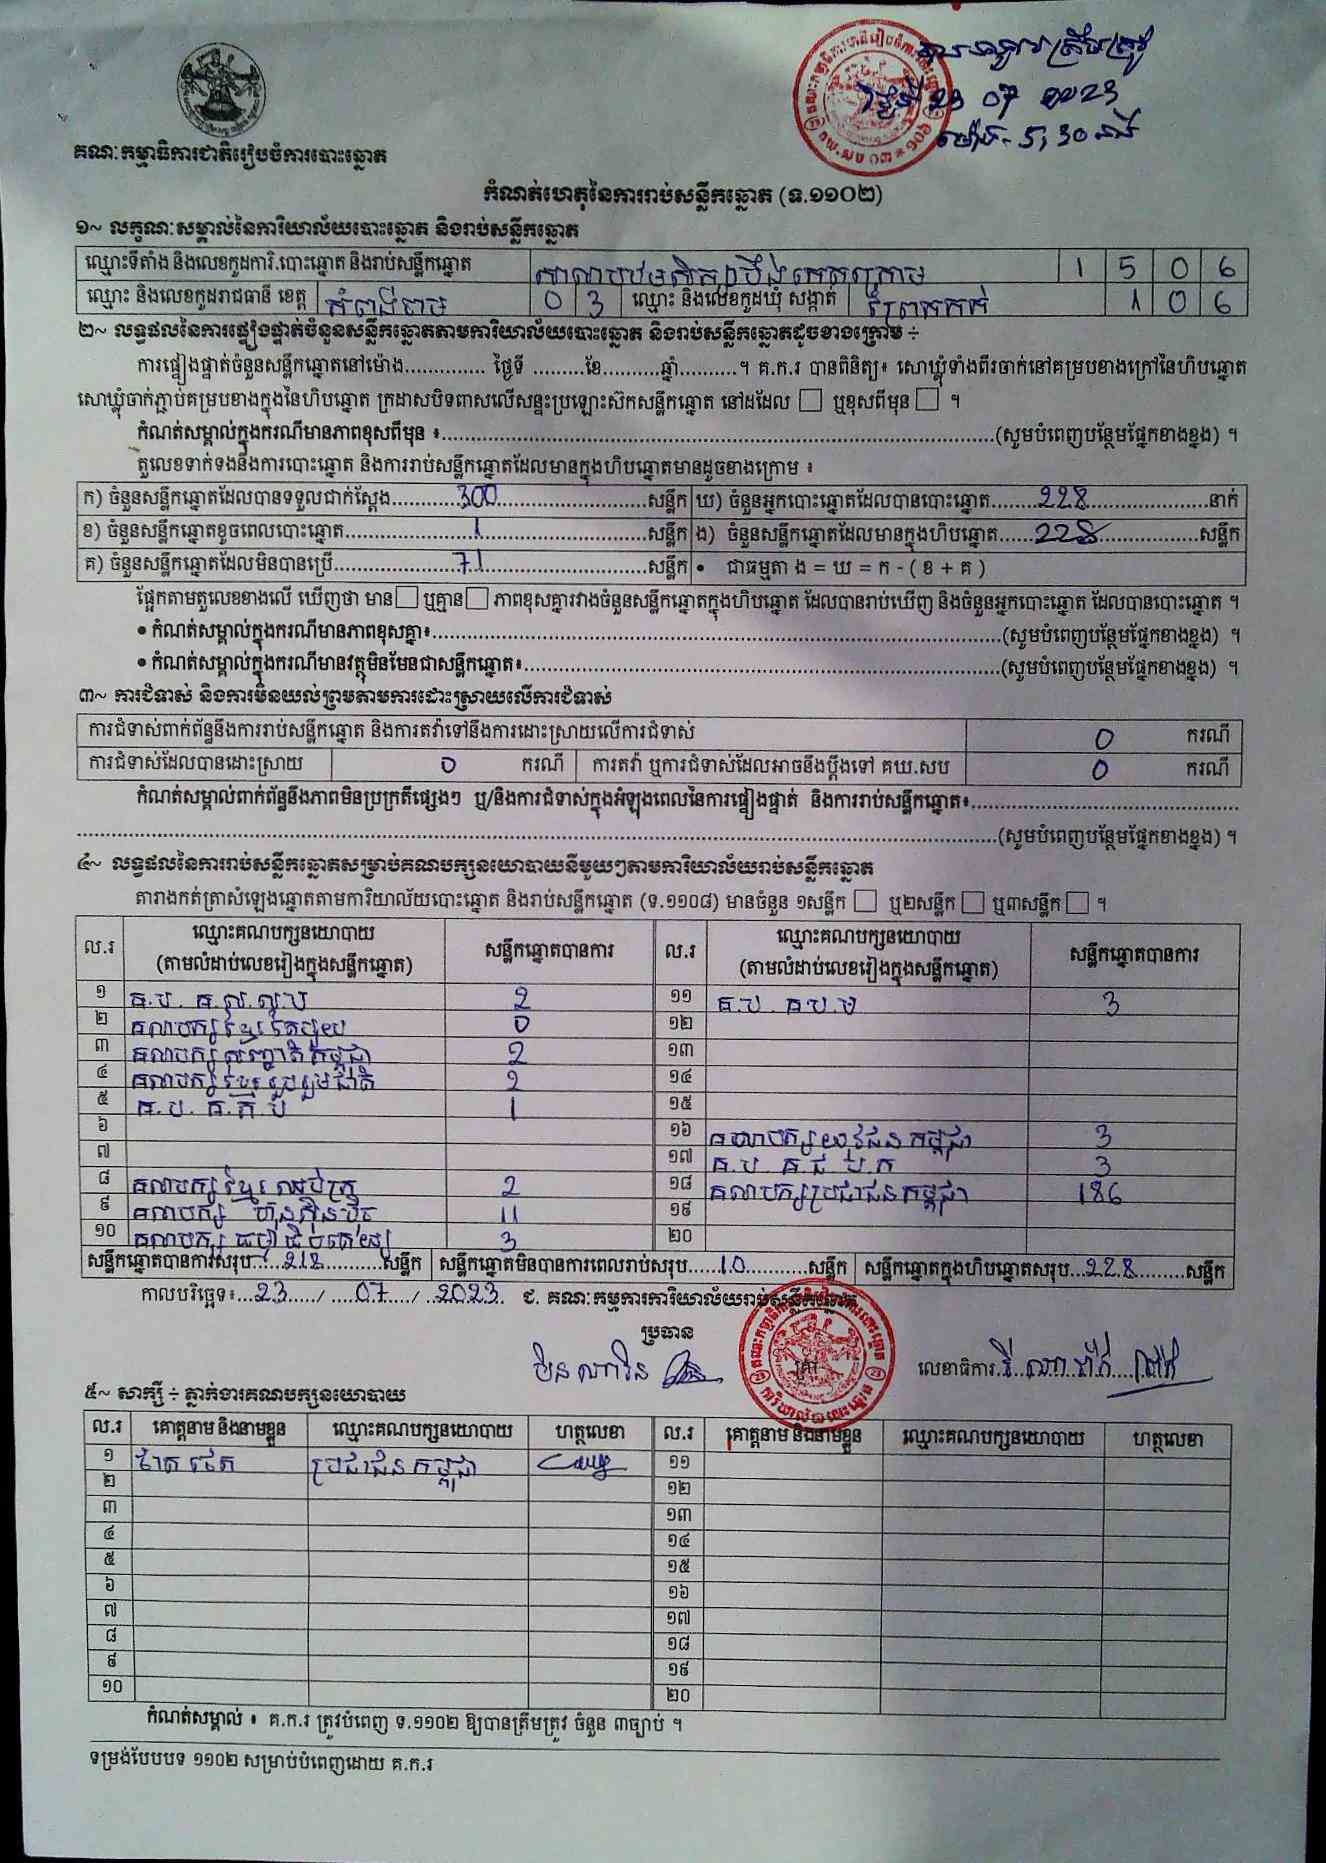 គណៈកម្មាធិការជាតិរៀបចំការបោះឆ្នោត
កំណត់ហេតុនៃការរាប់សន្លឹកឆ្នោត (ទ.១១០២)
១~ លក្ខណៈសម្គាល់នៃការិយាល័យបោះឆ្នោត និងរាប់សន្លឹកឆ្នោត
ឈ្មោះទីតាំង និងលេខកូដការិ.បោះឆ្នោត និងរាប់សន្លឹកឆ្នោត 1 5 0 6
ឈ្មោះ និងលេខកូដរាជធានី ខេត្ត កំពង់ចាម 0 3 ឈ្មោះ និងលេខកូដឃុំ សង្កាត់ ព្រែកកក់ 1 0 6
២~ លទ្ធផលនៃការផ្ទៀងផ្ទាត់ចំនួនសន្លឹកឆ្នោតតាមការិយាល័យបោះឆ្នោត និងរាប់សន្លឹកឆ្នោតដូចខាងក្រោម ÷
ការផ្ទៀងផ្ទាត់ចំនួនសន្លឹកឆ្នោតនៅម៉ោង.............. ថ្ងៃទី .........ខែ..........ឆ្នាំ..........។ គ.ក.រ បានពិនិត្យ៖ សោឃ្លុំទាំងពីរចាក់នៅគម្របខាងក្រៅនៃហិបឆ្នោត
សោឃ្លុំចាក់ភ្ជាប់គម្របខាងក្នុងនៃហិបឆ្នោត ក្រដាសបិទពាសលើសន្ទះប្រឡោះស៊កសន្លឹកឆ្នោត នៅដដែល □ ឬខុសពីមុន □ ។
កំណត់សម្គាល់ក្នុងករណីមានភាពខុសពីមុន ៖..........(សូមបំពេញបន្ថែមផ្នែកខាងខ្នង) ។
តួលេខទាក់ទងនឹងការបោះឆ្នោត និងការរាប់សន្លឹកឆ្នោតដែលមានក្នុងហិបឆ្នោតមានដូចខាងក្រោម ៖
ក) ចំនួនសន្លឹកឆ្នោតដែលបានទទួលជាក់ស្តែង..........300..........សន្លឹក ឃ) ចំនួនអ្នកបោះឆ្នោតដែលបានបោះឆ្នោត........228..........នាក់
ខ) ចំនួនសន្លឹកឆ្នោតខូចពេលបោះឆ្នោត..........1..........សន្លឹក ង) ចំនួនសន្លឹកឆ្នោតដែលមានក្នុងហិបឆ្នោត......228..........សន្លឹក
គ) ចំនួនសន្លឹកឆ្នោតដែលមិនបានប្រើ..........71..........សន្លឹក • ជាធម្មតា ង = ឃ = ក - ( ខ + គ )
ផ្អែកតាមតួលេខខាងលើ ឃើញថា មាន□ ឬគ្មាន□ ភាពខុសគ្នារវាងចំនួនសន្លឹកឆ្នោតក្នុងហិបឆ្នោត ដែលបានរាប់ឃើញ និងចំនួនអ្នកបោះឆ្នោត ដែលបានបោះឆ្នោត ។
• កំណត់សម្គាល់ក្នុងករណីមានភាពខុសគ្នា៖..........(សូមបំពេញបន្ថែមផ្នែកខាងខ្នង) ។
• កំណត់សម្គាល់ក្នុងករណីមានវត្ថុមិនមែនជាសន្លឹកឆ្នោត៖..........(សូមបំពេញបន្ថែមផ្នែកខាងខ្នង) ។
៣~ ការជំទាស់ និងការមិនយល់ព្រមតាមការដោះស្រាយលើការជំទាស់
ការជំទាស់ពាក់ព័ន្ធនឹងការរាប់សន្លឹកឆ្នោត និងការតវ៉ាទៅនឹងការដោះស្រាយលើការជំទាស់ 0 ករណី
ការជំទាស់ដែលបានដោះស្រាយ 0 ករណី ការតវ៉ា ឬការជំទាស់ដែលអាចនឹងប្តឹងទៅ គឃ.សប 0 ករណី
កំណត់សម្គាល់ពាក់ព័ន្ធនឹងភាពមិនប្រក្រតីផ្សេងៗ ឬ/និងការជំទាស់ក្នុងអំឡុងពេលនៃការផ្ទៀងផ្ទាត់ និងការរាប់សន្លឹកឆ្នោត៖..........
..........(សូមបំពេញបន្ថែមផ្នែកខាងខ្នង) ។
៤~ លទ្ធផលនៃការរាប់សន្លឹកឆ្នោតសម្រាប់គណបក្សនយោបាយនីមួយៗតាមការិយាល័យរាប់សន្លឹកឆ្នោត
តារាងកត់ត្រាសំឡេងឆ្នោតតាមការិយាល័យបោះឆ្នោត និងរាប់សន្លឹកឆ្នោត (ទ.១១០៨) មានចំនួន ១សន្លឹក □ ឬ២សន្លឹក □ ឬ៣សន្លឹក □ ។
ល.រ ឈ្មោះគណបក្សនយោបាយ (តាមលំដាប់លេខរៀងក្នុងសន្លឹកឆ្នោត) សន្លឹកឆ្នោតបានការ ល.រ ឈ្មោះគណបក្សនយោបាយ (តាមលំដាប់លេខរៀងក្នុងសន្លឹកឆ្នោត) សន្លឹកឆ្នោតបានការ
១ 2 ១១ 3
២ 0 ១២
៣ គណបក្សសញ្ជាតិកម្ពុជា 2 ១៣
៤ គណបក្សខ្មែររួបរួមជាតិ 2 ១៤
៥ 1 ១៥
៦ ១៦ គណបក្សយុវជនកម្ពុជា 3
៧ ១៧ 3
៨ 2 ១៨ គណបក្សប្រជាជនកម្ពុជា 186
៩ គណបក្ស ហ៊្វុនស៊ិនប៉ិច 11 ១៩
១០ គណបក្ស ធម្មាធិបតេយ្យ 3 ២០
សន្លឹកឆ្នោតបានការសរុប......218..........សន្លឹក សន្លឹកឆ្នោតមិនបានការពេលរាប់សរុប.....10..........សន្លឹក សន្លឹកឆ្នោតក្នុងហិបឆ្នោតសរុប...228........សន្លឹក
កាលបរិច្ឆេទ៖...23...../.....07...../...2023. ជ. គណៈកម្មការការិយាល័យរាប់សន្លឹកឆ្នោត
ប្រធាន
លេខាធិការ
៥~ សាក្សី ÷ ភ្នាក់ងារគណបក្សនយោបាយ
ល.រ គោត្តនាម និងនាមខ្លួន ឈ្មោះគណបក្សនយោបាយ ហត្ថលេខា ល.រ គោត្តនាម និងនាមខ្លួន ឈ្មោះគណបក្សនយោបាយ ហត្ថលេខា
១ ប្រជាជនកម្ពុជា ១១
២ ១២
៣ ១៣
៤ ១៤
៥ ១៥
៦ ១៦
៧ ១៧
៨ ១៨
៩ ១៩
១០ ២០
កំណត់សម្គាល់ ៖ គ.ក.រ ត្រូវបំពេញ ទ.១១០២ ឱ្យបានត្រឹមត្រូវ ចំនួន ៣ច្បាប់ ។
ទម្រង់បែបបទ ១១០២ សម្រាប់បំពេញដោយ គ.ក.រ